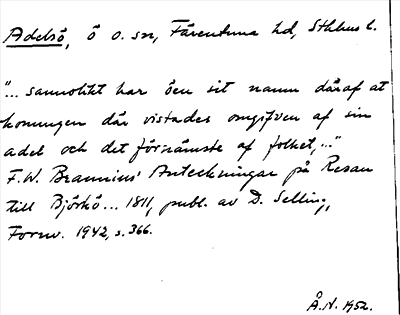 Adelsö, ö o. sn, Färentuna hd, Sthlms l.
"... sannolikt har öen sit namn däraf at
konungen där vistades omgifven af sin
adel och det förnämste af folket,..."
F.W. Braunius' Anteckningar på Resan
till Björkö... 1811, publ. av D. Selling,
Fornv. 1942, s. 366.
Å.N. 1952.